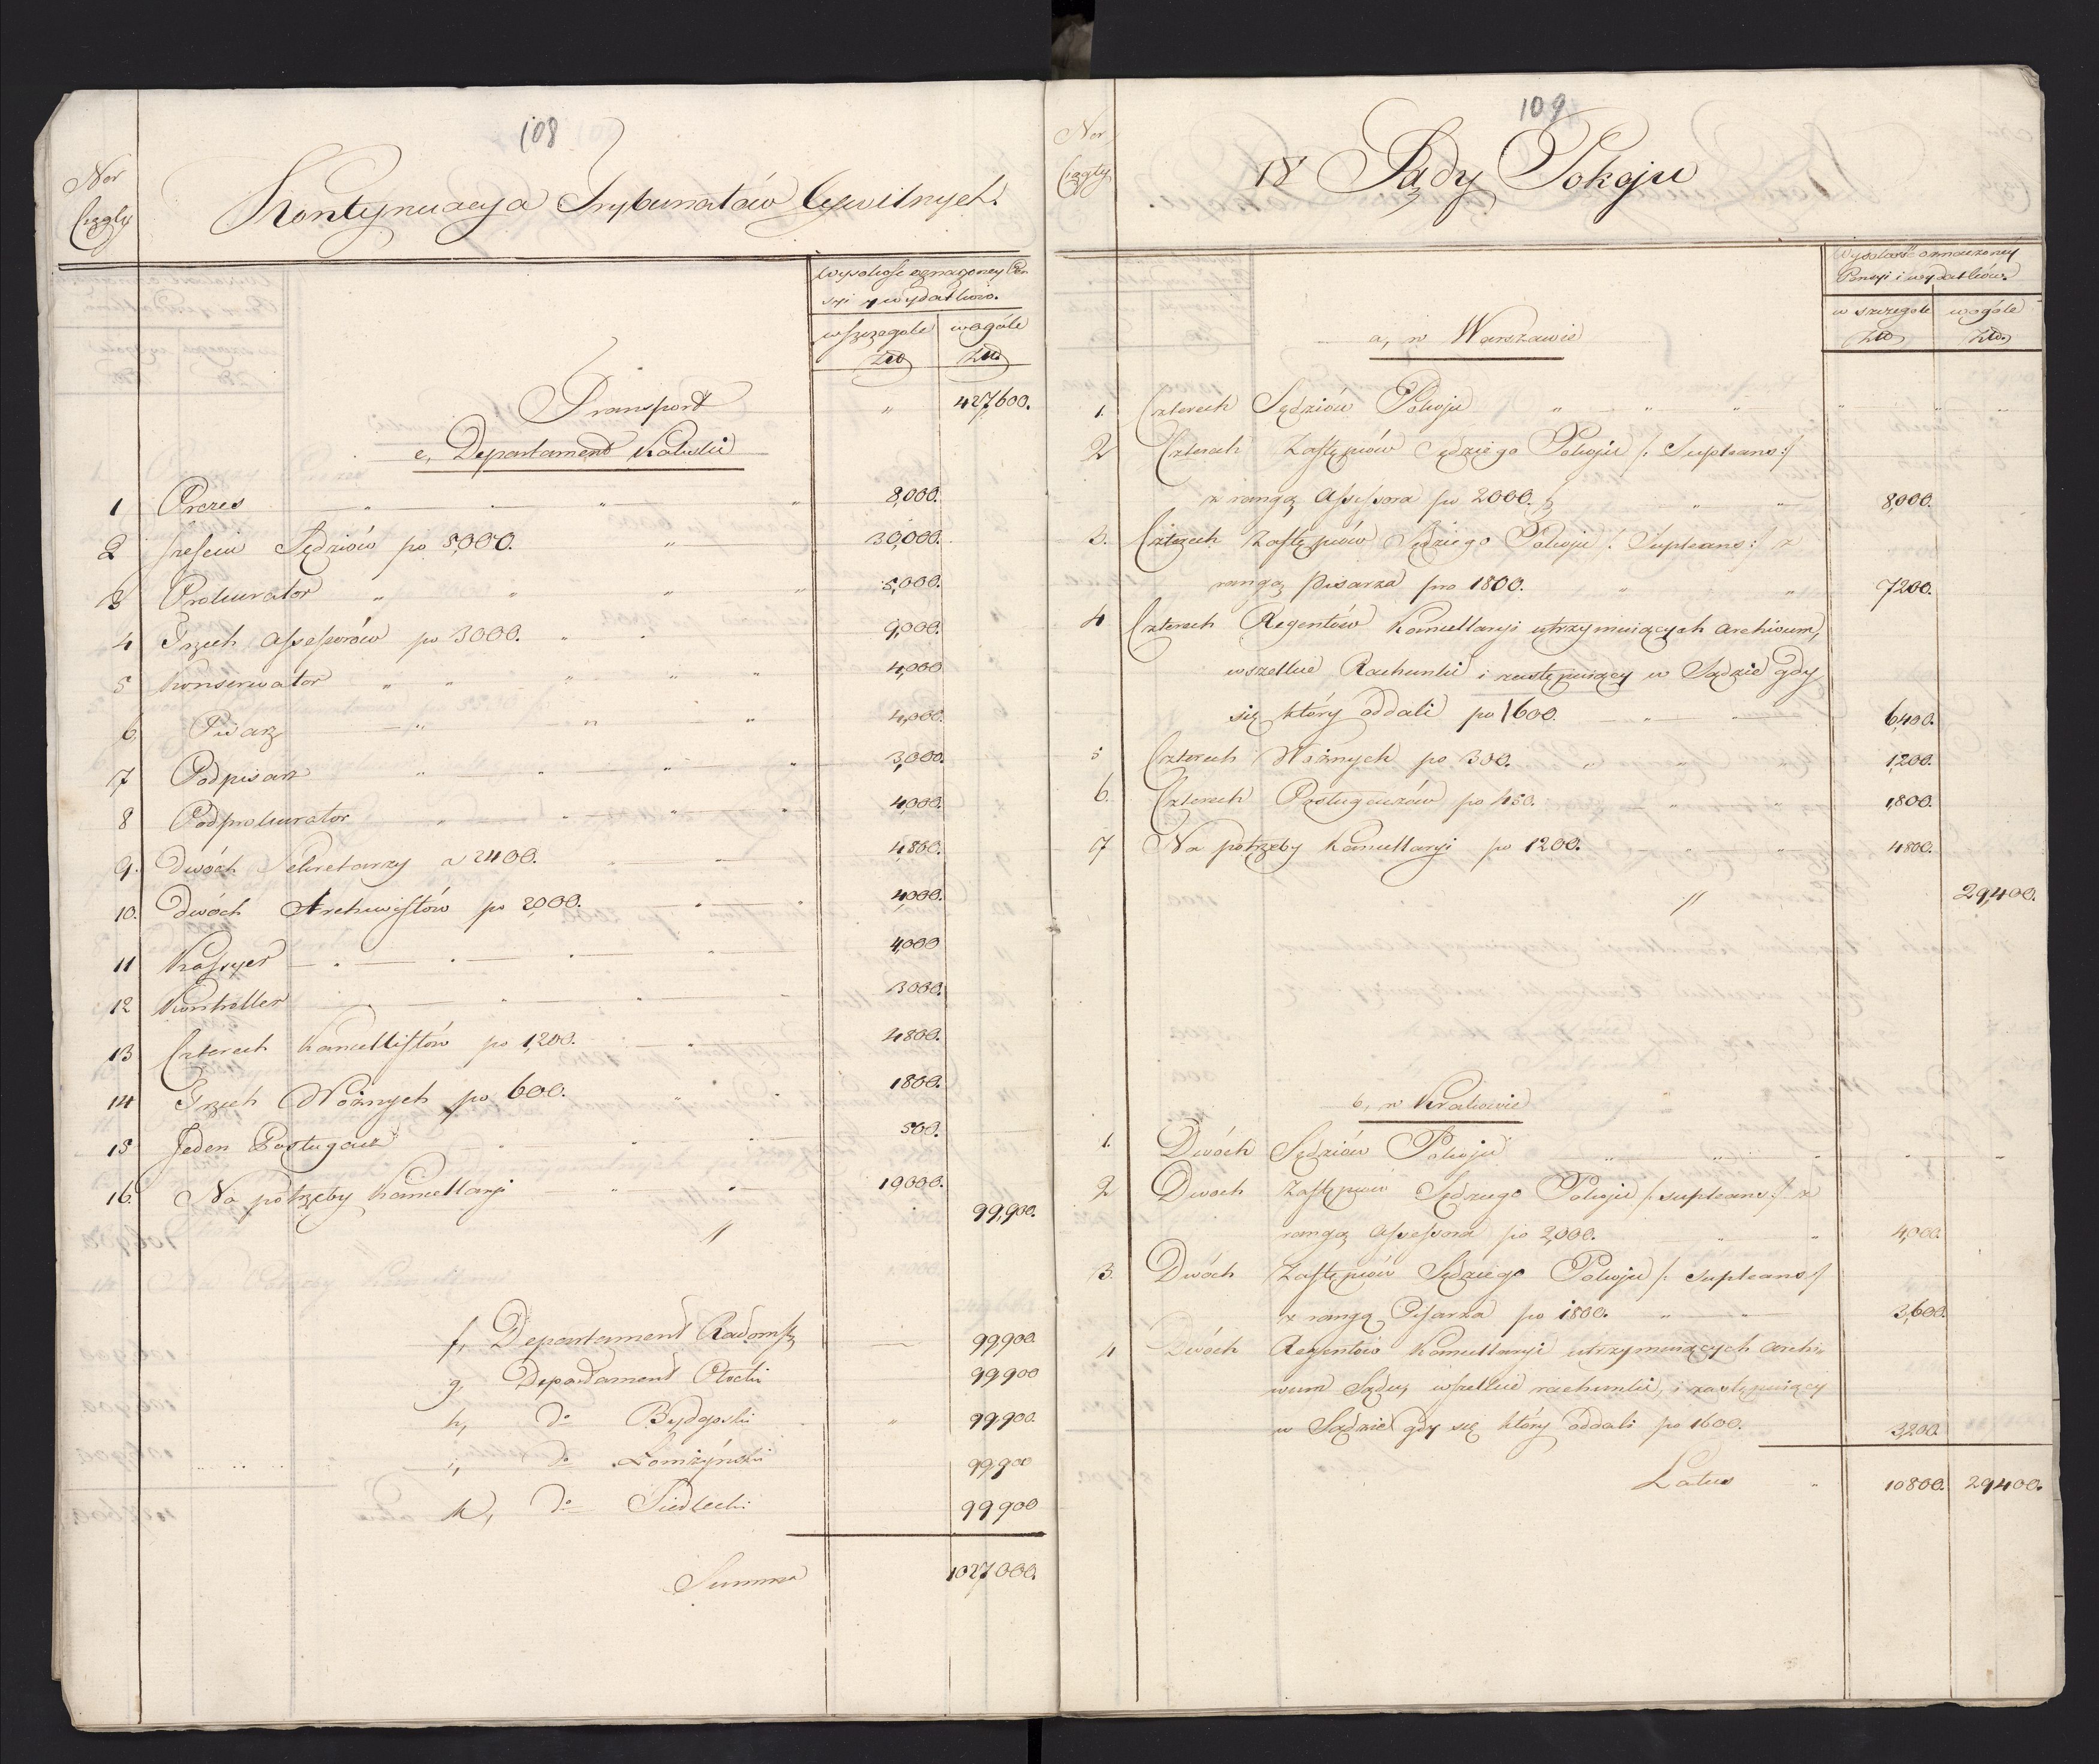 108
Nor
Ciągły
Kontynuacya Trybunałów Cywilnych.
Wysokość oznaczoney Pen
syi y wydatków.
w szczegole wogóle
Złłp Złłp
Transport " 427,600.
e, Departament Kaliski
1 Prezes 8,000.
2 sześciu Sędziów po 5,000. 30,000.
3 Prokurator 5,000.
4 Trzech Assessorów po 3000. 9,000.
5 Konserwator 4,000
6. Pisarz 4,000.
7 Podpisarz 3,000.
8 Podprokurator 4,000.
9. Dwóch Sekretarzy a 2400. 4,800.
10. Dwóch Archiwistów po 2,000. 4,000.
11 Kassyer 4,000
12 Kontroller 3000.
13 Czterech Kancellistów po 1,200. 4800.
14 Trzech Woźnych po 600. 1800.
15 Jeden Posługacz 500.
16. Na potrzeby Kancellaryi 19000.
99,900.
f, Departament Radomski 99,900.
g, Departament Płocki 99,900
h, do Bydgoski " 99,900.
i, do Łomżyński 99,900
k, do Siedlecki 99,900
Summa 1027,000.
109
Nor
Ciągły
18 Sądy Pokoju
Wysokość oznaczoney
Pensyi i wydatków.
w szczegole wogóle
Złłp Złłp
a, w Warszawie
1. Czterech Sędziów Pokoju
2 Czterech Zastępców Sędziego Pokoju /: Supleans :/
z rangą Assessora po 2000. 8,000.
3. Czterech Zastępców Sędziego Pokoju /: Supleans :/ z
rangą Pisarza po 1800. 7200.
4 Czterech Regentów Kancellaryi utrzymuiących Archiwum,
wszelkie Rachunki i zastępuiący w Sądzie gdy
się który oddali po 1600. 6,400.
5 Czterech Woźnych po 300. 1,200.
6. Czterech Posługaczów po 450. 1,800.
7 Na potrzeby Kancellaryi po 1200. 4800.
29,400.
b, w Krakowie
1. Dwóch Sędziów Pokoju
2 Dwoch Zastępców Sędziego Pokoju /: supleans :/ z
rangą Assessora po 2,000. 4,000
3. Dwóch Zastępców Sędziego Pokoju /: supleans :/
z rangą Pisarza po 1800. 3,600.
4 Dwóch Regentów Kancellaryi utrzymuiących archi-
wum Sądu, wszelkie rachunki, i zastępuiący
w Sądzie gdy się który oddali po 1600. 3,200
Latus 10800. 29400.